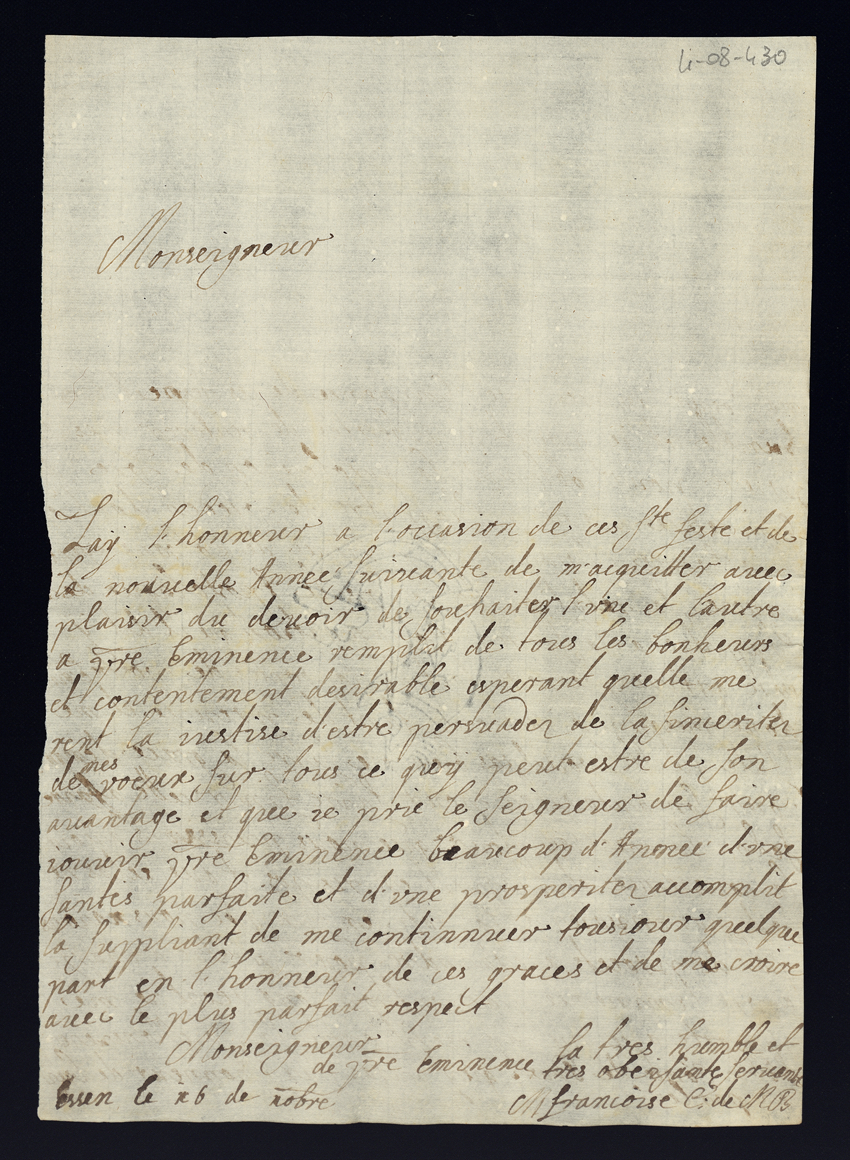 4-08-430
Monseigneur
Jay l'honneur a l'occasion de ces Ste feste et de
la nouuelle Annee suiuante de m'aquitter auec
plaisir du deuoir de souhaiter l'vne et lautre
a vre Eminence remplit de tous les bonheurs
et contentement desirable esperant quelle me
rent la iustise d'estre persuader de la sinceriter
de mes voeux sur tous ce quij peut estre de son
auantage et que ie prie le seigneur de faire
iouuir vre Eminence beaucoup d'Annee d'vne
santes parfaite et d'vne prosperiter accomplit
la suppliant de me continnuer tousiour quelque
part en l'honneur de ces graces et de me croire
auec le plus parfait respect
Monseigneur
de vre Eminence la tres humble et
tres obeissante seruante
Essen le 26 de nobre M francoise C: de